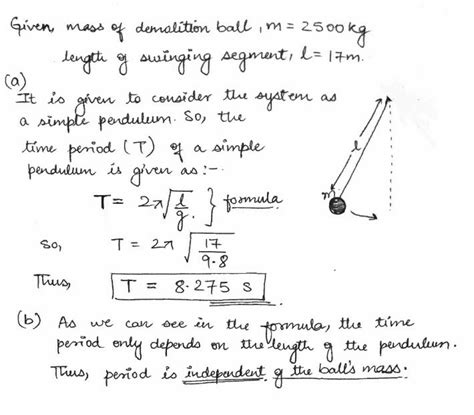 Given, mass of demolition ball, m = 2500kg
length of swinging segment, l = 17m.
(a)
It is given to consider the system as
a simple pendulum. So, the
time period (T) of a simple
pendulum is given as :-
T = 2π√(l/g) } formula
So, T = 2π √(17/9.8)
Thus, T = 8.275 s
l
m
(b) As we can see in the formula, the time
period only depends on the length of the pendulum.
Thus, period is independent of the ball's mass.